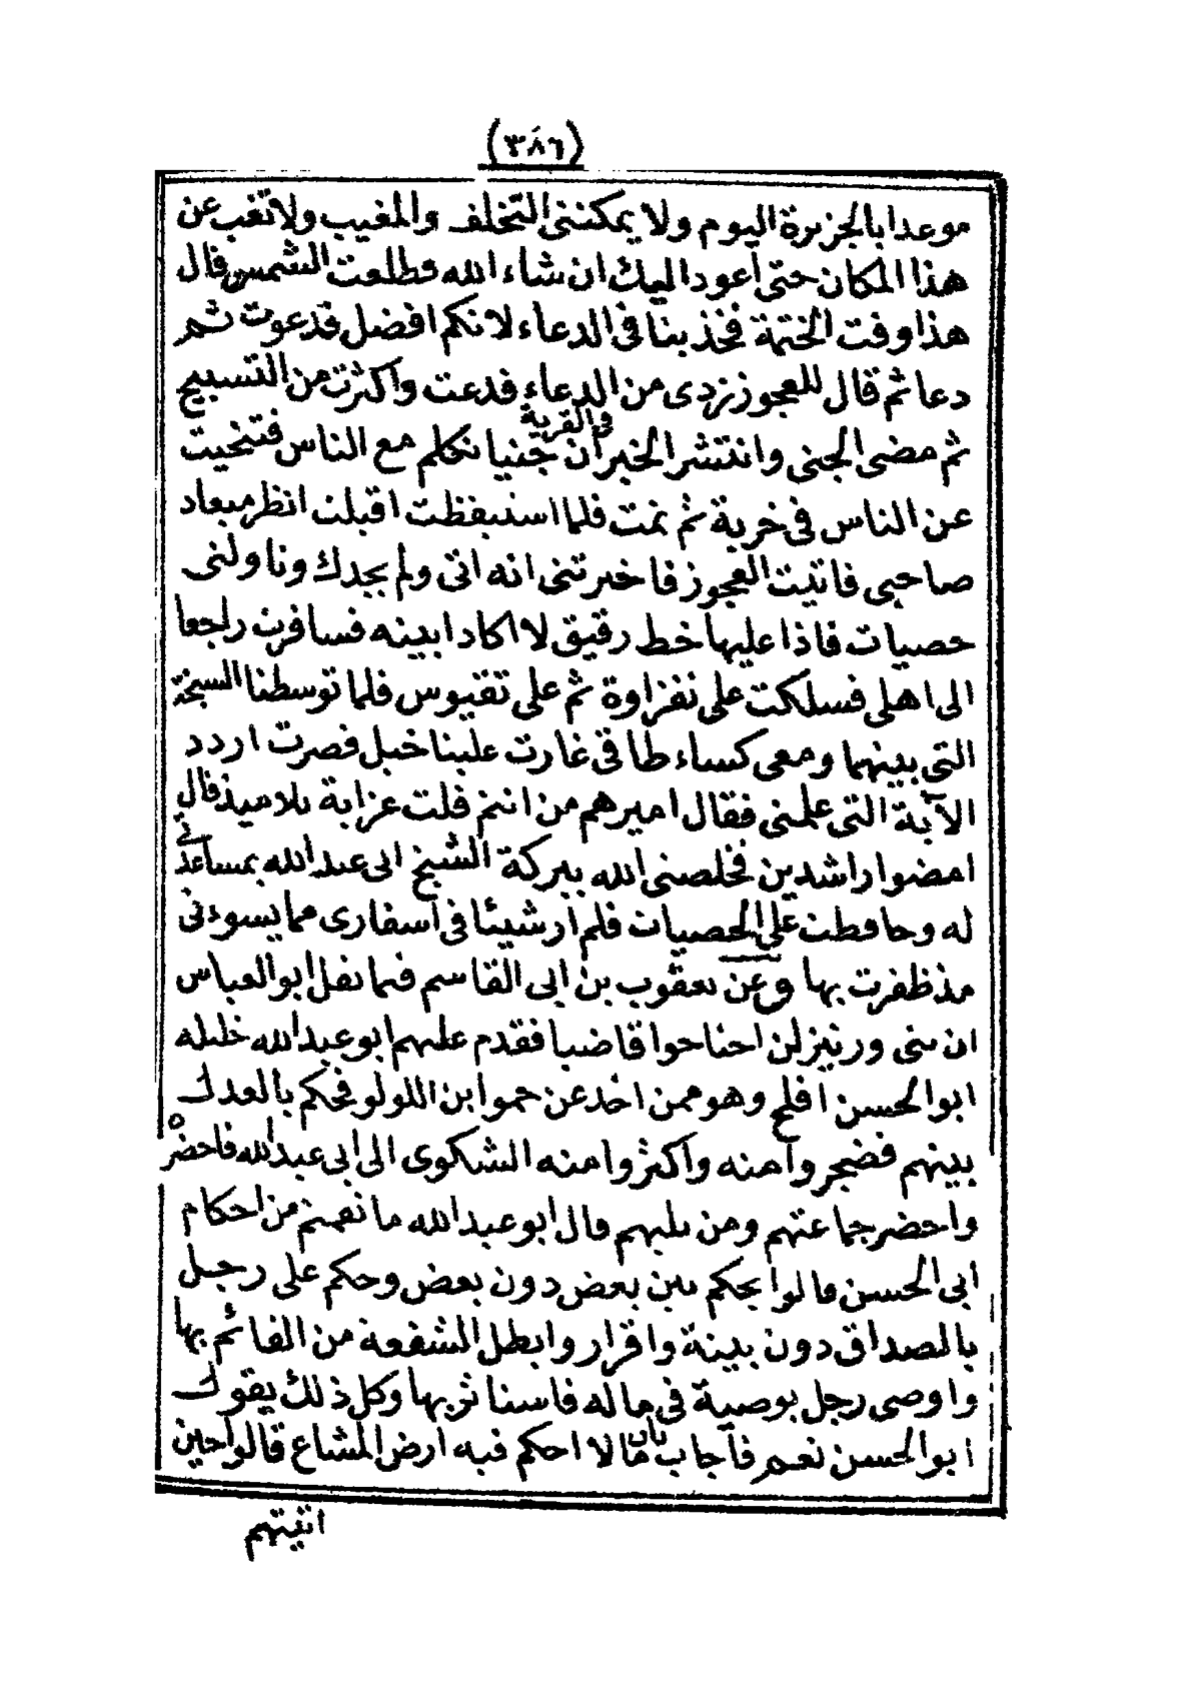 (٣٨٦)
موعدا بالجزيرة اليوم ولا يمكننى التخلف والمغيب ولا تغب عن
هذا المكان حتى أعود اليك ان شاء الله فطلعت الشمس وقال
هذا وقت الختمة فخذ بنا فى الدعاء لانكم افضل فدعوت ثم
دعا ثم قال للعجوز زدى من الدعاء فدعت واكثرت من التسبيح
ثم مضى الجنى وانتشر الخبر فى القرية أن جنيا تكلم مع الناس فتنحيت
عن الناس فى خربة ثم نمت فلما استيقظت اقبلت انظر ميعاد
صاحبى فاتيت العجوز فاخبرتنى انه اتى ولم يجدك وناولنى
حصيات فاذا عليها خط رقيق لا اكاد ابينه فسافرت راجعا
الى اهلى فسلكت على نفزاوة ثم على تقيوس فلما توسطنا السبخة
التى بينهما ومعى كساء طاقى غارت علينا خيل فصرت اردد
الآية التى علمنى فقال اميرهم من انتم قلت عزابة تلاميذ قال
امضوا راشدين فخلصنى الله ببركة الشيخ ابى عبد الله بمساعدتى
له وحافظت على الحصيات فلم ار شيئا فى أسفارى مما يسوءنى
مذ ظفرت بها وعن يعقوب بن ابى القاسم فيما نقل ابو العباس
ان بنى ورتيزلن احتاحوا قاضيا فقدم عليهم ابو عبد الله خليله
ابو الحسن أفلح وهو ممن اخذ عن حمو ابن اللولو فحكم بالعدل
بينهم فضجروا منه واكثروا منه الشكوى الى ابى عبد الله فاحضره
واحضر جماعتهم ومن يليهم قال ابو عبد الله ما نقمتم من احكام
أبى الحسن قالوا يحكم بين بعض دون بعض وحكم على رجل
بالصداق دون بينة واقرار وابطل الشفعة من القائم بها
واوصى رجل بوصية فى ماله فاستاثر بها وكل ذلك يقول
ابو الحسن نعم فأجاب بأن مالا احكم فيه ارض المشاع قالوا حين
اتيتهم